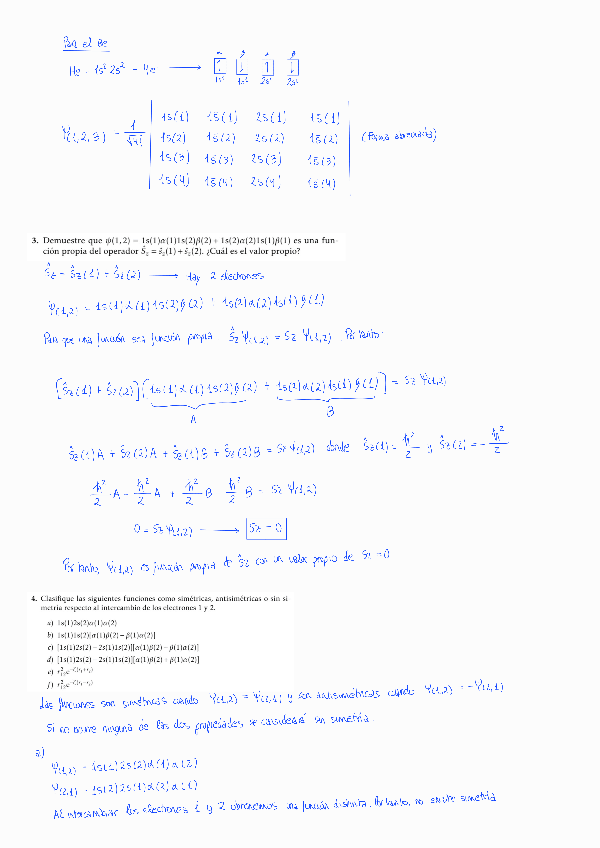 Para el Be
He : 1s² 2s² - 4e ⟶ 1s¹ 1s¹ 2s¹ 2s¹
Ψ(1,2,3) = 1/√4! | 1s(1) 1s̄(1) 2s(1) 1s̄(1) |
| 1s(2) 1s̄(2) 2s(2) 1s̄(2) | (Forma abreviada)
| 1s(3) 1s̄(3) 2s(3) 1s̄(3) |
| 1s(4) 1s̄(4) 2s(4) 1s̄(4) |
3. Demuestre que ψ(1,2) = 1s(1)α(1)1s(2)β(2) + 1s(2)α(2)1s(1)β(1) es una fun-
ción propia del operador Ŝz = ŝz(1) + ŝz(2). ¿Cuál es el valor propio?
Ŝz = Ŝz(1) + Ŝz(2) ⟶ Hay 2 electrones
Ψ(1,2) = 1s(1)α(1)1s(2)β(2) + 1s(2)α(2)1s(1)β(1)
Para que una función sea función propia Ŝz Ψ(1,2) = Sz Ψ(1,2). Por tanto:
[Ŝz(1) + Ŝz(2)] [1s(1)α(1)1s(2)β(2) + 1s(2)α(2)1s(1)β(1)] = Sz Ψ(1,2)
A B
Ŝz(1)A + Ŝz(2)A + Ŝz(1)B + Ŝz(2)B = Sz Ψ(1,2) donde Ŝz(1) = ħ²/2 y Ŝz(2) = - ħ²/2
ħ²/2 · A - ħ²/2 A + ħ²/2 B - ħ²/2 B = Sz Ψ(1,2)
0 = Sz Ψ(1,2) ⟶ Sz = 0
Por tanto, Ψ(1,2) es función propia de Ŝz con un valor propio de Sz = 0
4. Clasifique las siguientes funciones como simétricas, antisimétricas o sin si
metría respecto al intercambio de los electrones 1 y 2.
a) 1s(1)2s(2)α(1)α(2)
b) 1s(1)1s(2)[α(1)β(2) − β(1)α(2)]
c) [1s(1)2s(2) − 2s(1)1s(2)][α(1)β(2) − β(1)α(2)]
d) [1s(1)2s(2) − 2s(1)1s(2)][α(1)β(2) + β(1)α(2)]
e)
f)
Las funciones son simétricas cuando Ψ(1,2) = Ψ(2,1) y son antisimétricas cuando Ψ(1,2) = -Ψ(2,1)
Si no ocurre ninguna de las dos propiedades se considerará sin simetría.
a)
Ψ(1,2) = 1s(1)2s(2)α(1)α(2)
Ψ(2,1) = 1s(2)2s(1)α(2)α(1)
Al intercambiar los electrones 1 y 2 obtenemos una función distinta. Por tanto, no existe simetría